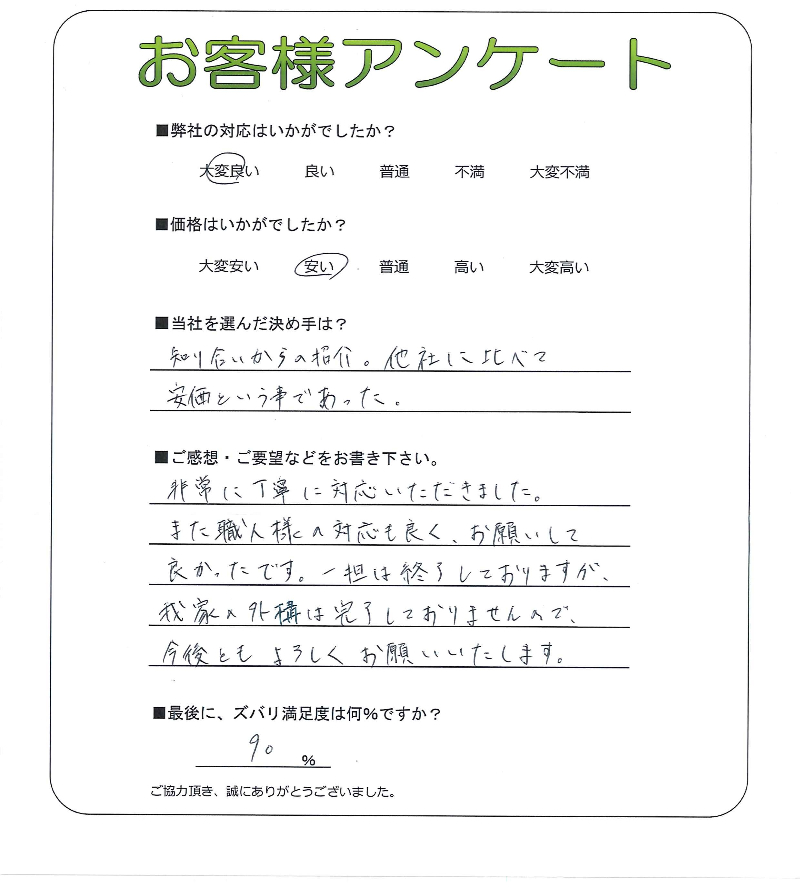 お客様アンケート
■弊社の対応はいかがでしたか？
大変良い 良い 普通 不満 大変不満
■価格はいかがでしたか？
大変安い 安い 普通 高い 大変高い
■当社を選んだ決め手は？
知り合いからの紹介。他社に比べて
安価という事であった。
■ご感想・ご要望などをお書き下さい。
非常に丁寧に対応いただきました。
また職人様の対応も良く、お願いして
良かったです。一担は終了しておりますが、
我家の外構は完了しておりませんので、
今後ともよろしくお願いいたします。
■最後に、ズバリ満足度は何％ですか？
90 %
ご協力頂き、誠にありがとうございました。